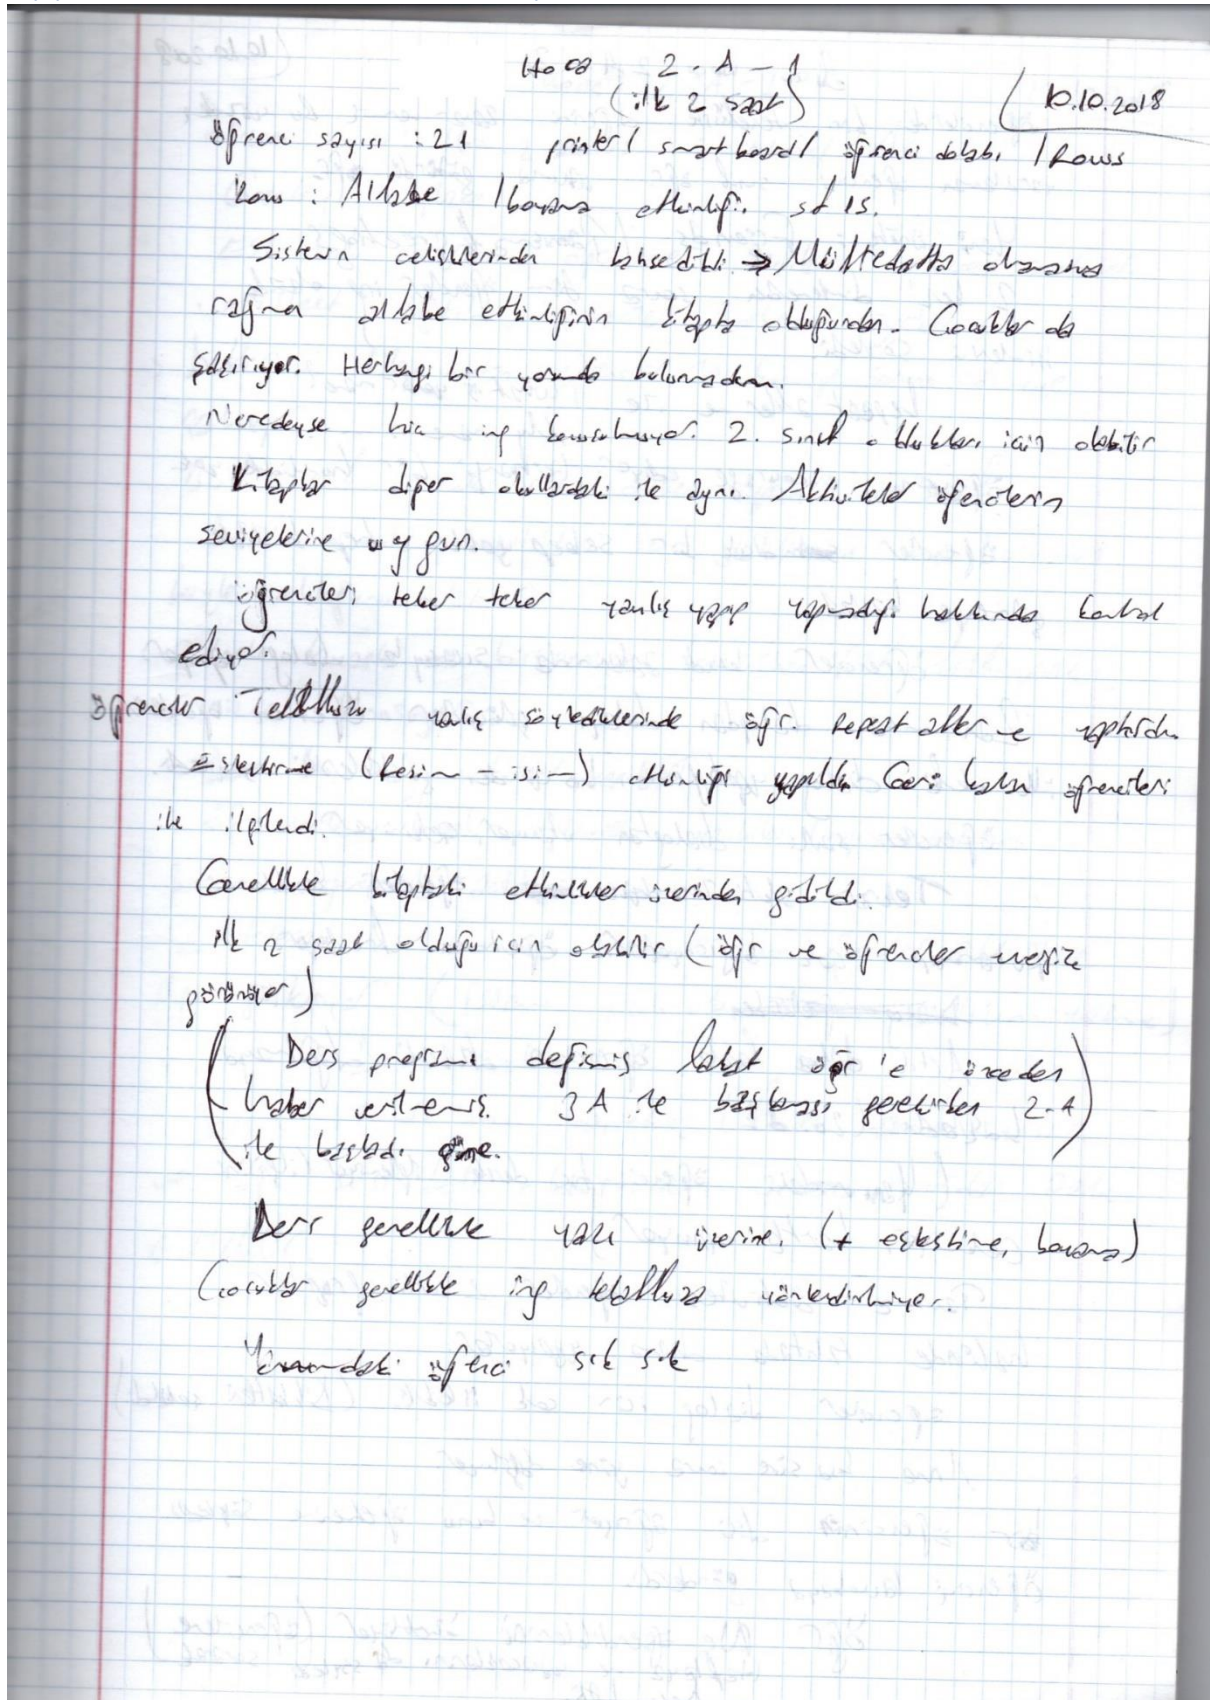 Hoca 2. A - 1
(ilk 2 saat)
10.10.2018
Öğrenci sayısı : 21 printer / smart board / öğrenci dolabı / Rows
Konu : Alfabe / boyama etkinliği.
Sistemin çelişkilerinden bahsedildi → Müfredatta olmamasına
rağmen alfabe etkinliğinin kitapta olduğundan. Çocuklar da
şaşırıyor. Herhangi bir yorumda bulunmadım.
Neredeyse hiç ing konuşulmuyor. 2. sınıf oldukları için olabilir
Kitaplar diğer okullardaki ile aynı. Aktiviteler öğrencilerin
seviyelerine uygun.
öğrencileri teker teker yanlış yapıp yapmadığı hakkında kontrol
ediyor.
öğrenciler Telaffuzu yanlış söylediklerinde öğr. repeat after me yaptırdı.
Eşleştirme (Resim - isim) etkinliği yapıldı. Geri kalan öğrencileri
ile ilgilendi.
Genellikle kitaptaki etkinlikler üzerinden gidildi.
ilk 2 saat olduğu için olabilir (öğr ve öğrenciler enerjik
görünüyor)
Ders programı değişmiş fakat öğr'e önceden
haber verilmemiş. 3A ile başlaması gerekirken 2-A
ile başladı güne.
Ders genellikle yazı üzerine. (+ eşleştirme, boyama)
Çocuklar genellikle ing telaffuza yönlendirilmiyor.
Yanımdaki öğrenci sık sık